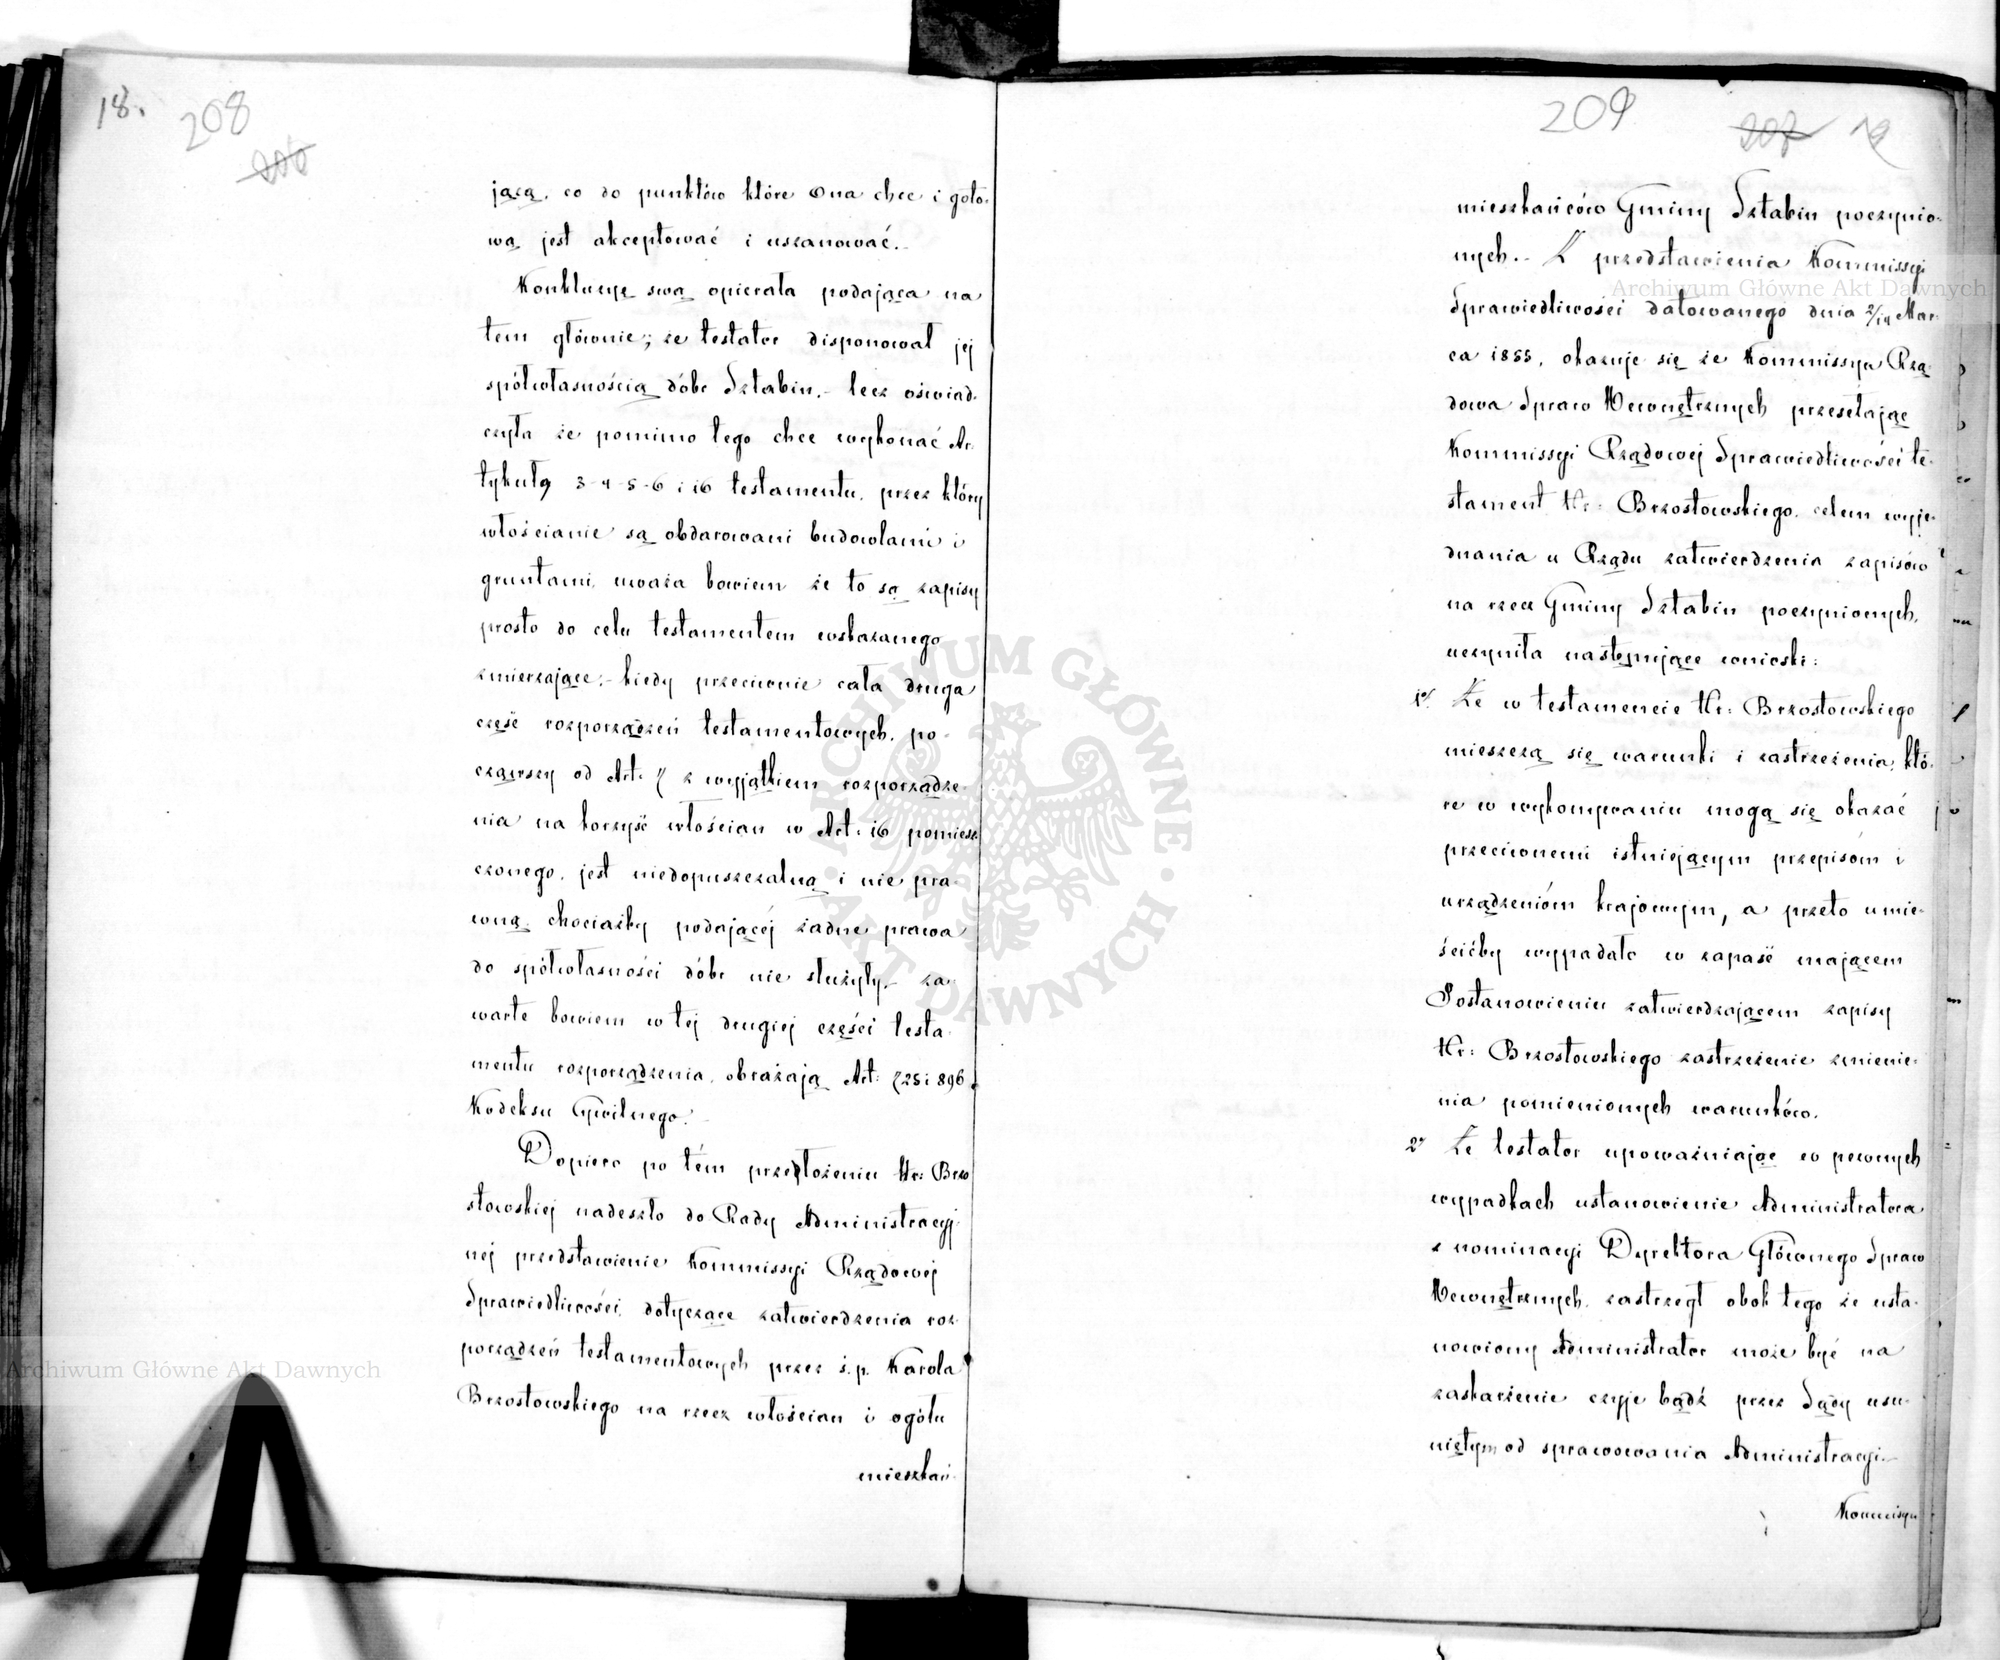 18.
208
206
jącą, co do punktów które Ona chce i goto-
wą jest akceptować i uszanować.-
Konkluzyę swą opierała podająca na
tem głównie; że testator disponował jej
spółwłasnością dóbr Sztabin.- lecz oświad-
czyła że pomimo tego chce wykonać Ar-
tykuły 3-4-5-6 i 16 testamentu, przez który
włościanie są obdarowani budowlami i
gruntami, uważa bowiem że to są zapisy
prosto do celu testamentem wskazanego
zmierzające,- kiedy przeciwnie cała druga
część rozporządzeń testamentowych, po-
cząwszy od Art: 7 z wyjątkiem rozporządze-
nia na korzyść włościan w Art: 16 pomiesz-
czonego, jest niedopuszczalną i nie pra-
wną, chociażby podającéj żadne prawa
do spółwłasności dóbr nie służyły,- za-
warte bowiem w tej drugiej części testa-
mentu rozporządzenia, obrażają Art: 725 i 896
Kodeksu Cywilnego.-
Dopiero po tém przełożeniu Hr: Brzo
stowskiej nadeszło do Rady Administracyj-
nej przedstawienie Kommissyi Rządowej
Sprawiedliwości, dotyczące zatwierdzenia roz-
porządzeń testamentowych przez ś.p. Karola
Brzostowskiego na rzecz włościan i ogółu
mieszkań-
209
207 19
mieszkańców Gminy Sztabin poczynio-
nych.- Z przedstawienia Kommissyi
Sprawiedliwości datowanego dnia 2/14 Mar-
ca 1855, okazuje się że Kommissya Rzą-
dowa Spraw Wewnętrznych przesełając
Kommissyi Rządowej Sprawiedliwości te-
stament Hr: Brzostowskiego, celem wyje-
dnania u Rządu zatwierdzenia zapisów
na rzecz Gminy Sztabin poczynionych,
uczyniła następujące wnioski:
1o/ Że w testamencie Hr: Brzostowskiego
mieszczą się warunki i zastrzeżenia, któ-
re w wykonywaniu mogą się okazać
przeciwnemi istniejącym przepisóm i
urządzenióm krajowym, a przeto umie-
ścićby wypadało w zapaść mającem
Postanowieniu zatwierdzającem zapisy
Hr: Brzostowskiego zastrzeżenie zmienie-
nia pomienionych warunków.
2o Że testator upoważniając w pewnych
wypadkach ustanowienie Administratora
z nominacyi Dyrektora Głównego Spraw
Wewnętrznych, zastrzegł obok tego że usta-
nowiony Administrator może być na
zaskarżenie czyje bądź przez Sądy usu-
niętym od sprawowania Administracyi.-
Kommissya